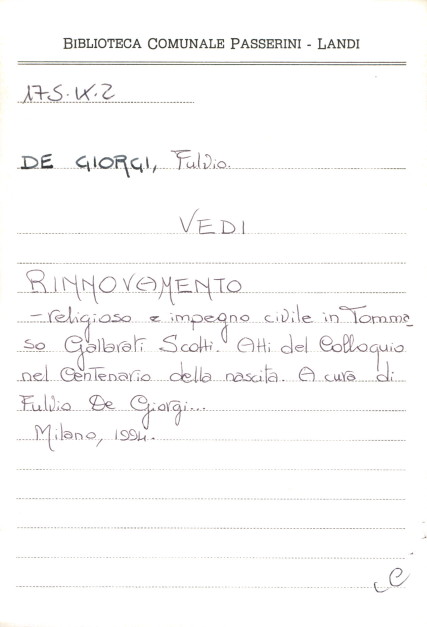 BIBLIOTECA COMUNALE PASSERINI - LANDI
175.IX.2
DE GIORGI, Fulvio.
VEDI
RINNOVAMENTO
- religioso e impegno civile in Tomma
so Gallarati Scotti. Atti del Colloquio
nel Centenario della nascita. A cura di
Fulvio De Giorgi...
Milano, 1994.
C